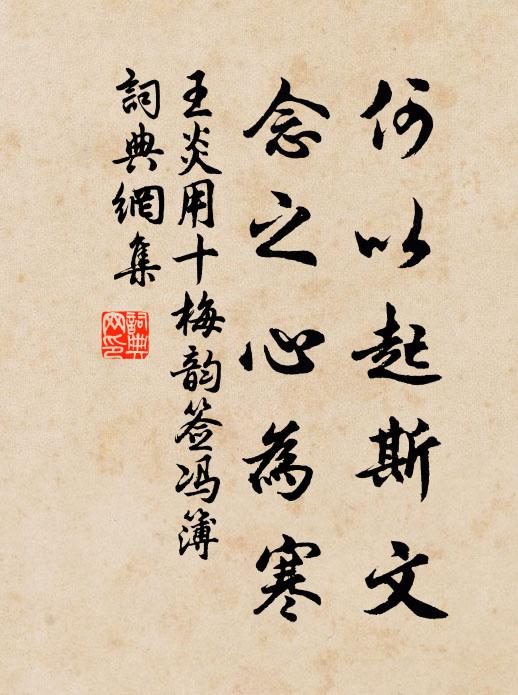 何以起斯文
念之心為寒
王炎用十梅韵签冯簿
詞典網集
詞典網印